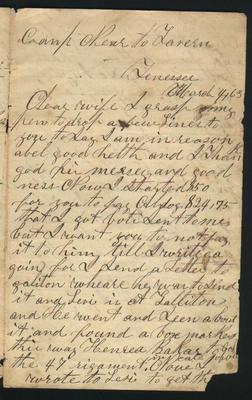 Camp Near to Tavern
Tenessee
March 4, 63
Dear wife I grasp my
pen to drop a few lines to
you to say I am in reason
abel good helth and I thank
god his mersey and good
ness Now I started $50
for you to pay $24.75
that I got
but I want you to not pay
it to him till I write a
gain for I send a letter to
galiton wheare he was to send
it and Levi is at Galliton
and he went and seen about
it and found a box marked
this way Henrea Bakar
the 47 rigament Now I
wrote to Levi to get the